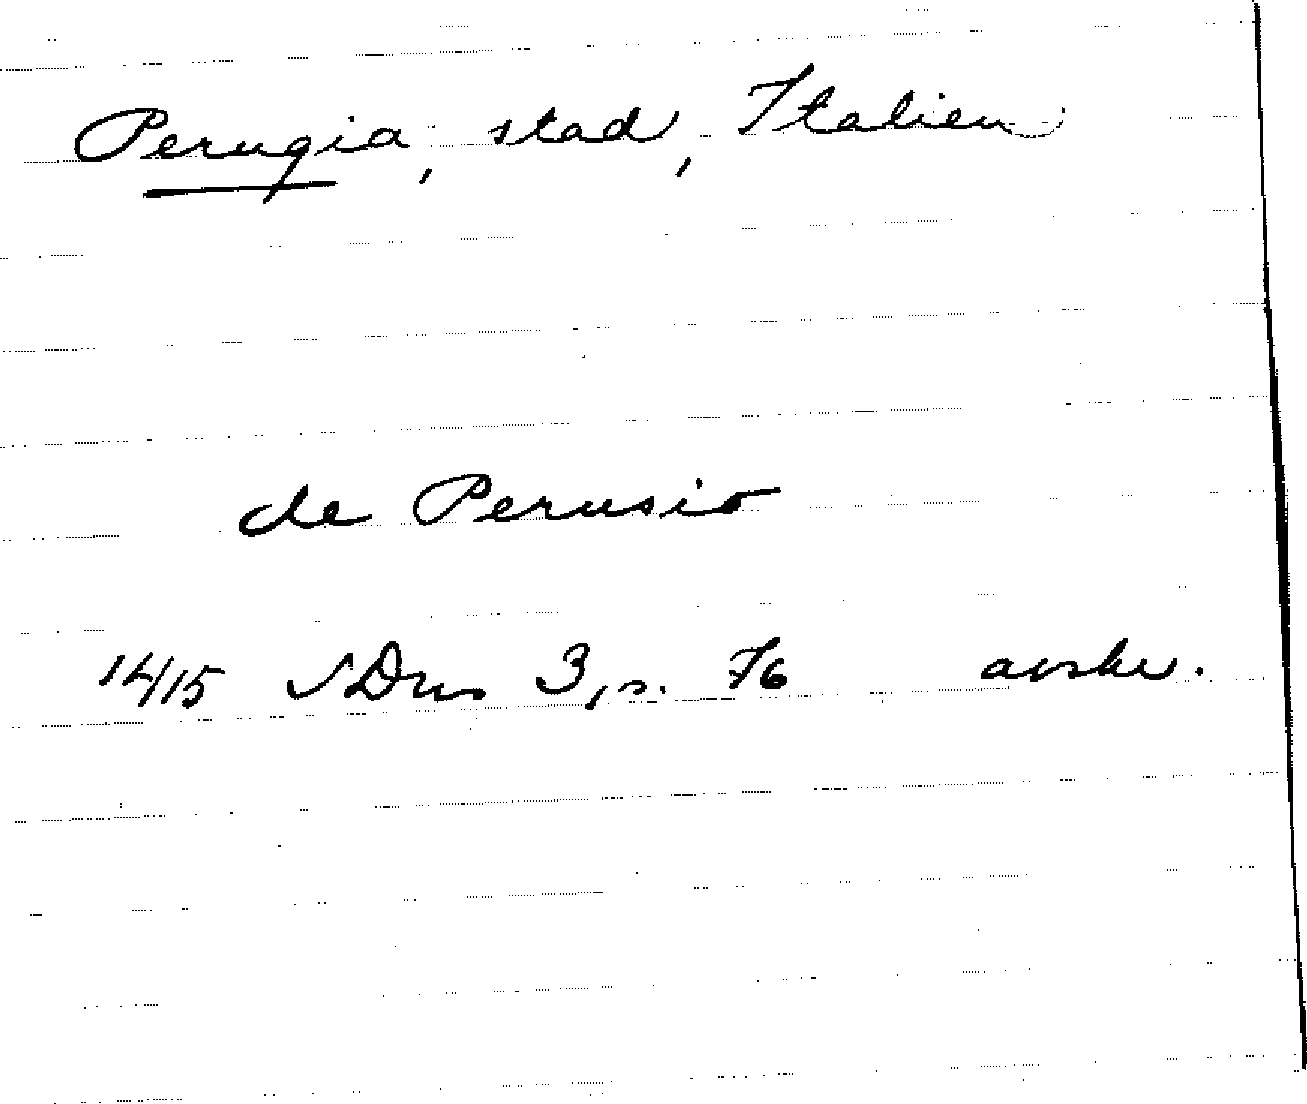 Perugia, stad, Italien
de Perusio
1415 SDns 3, s. 76 avskr.